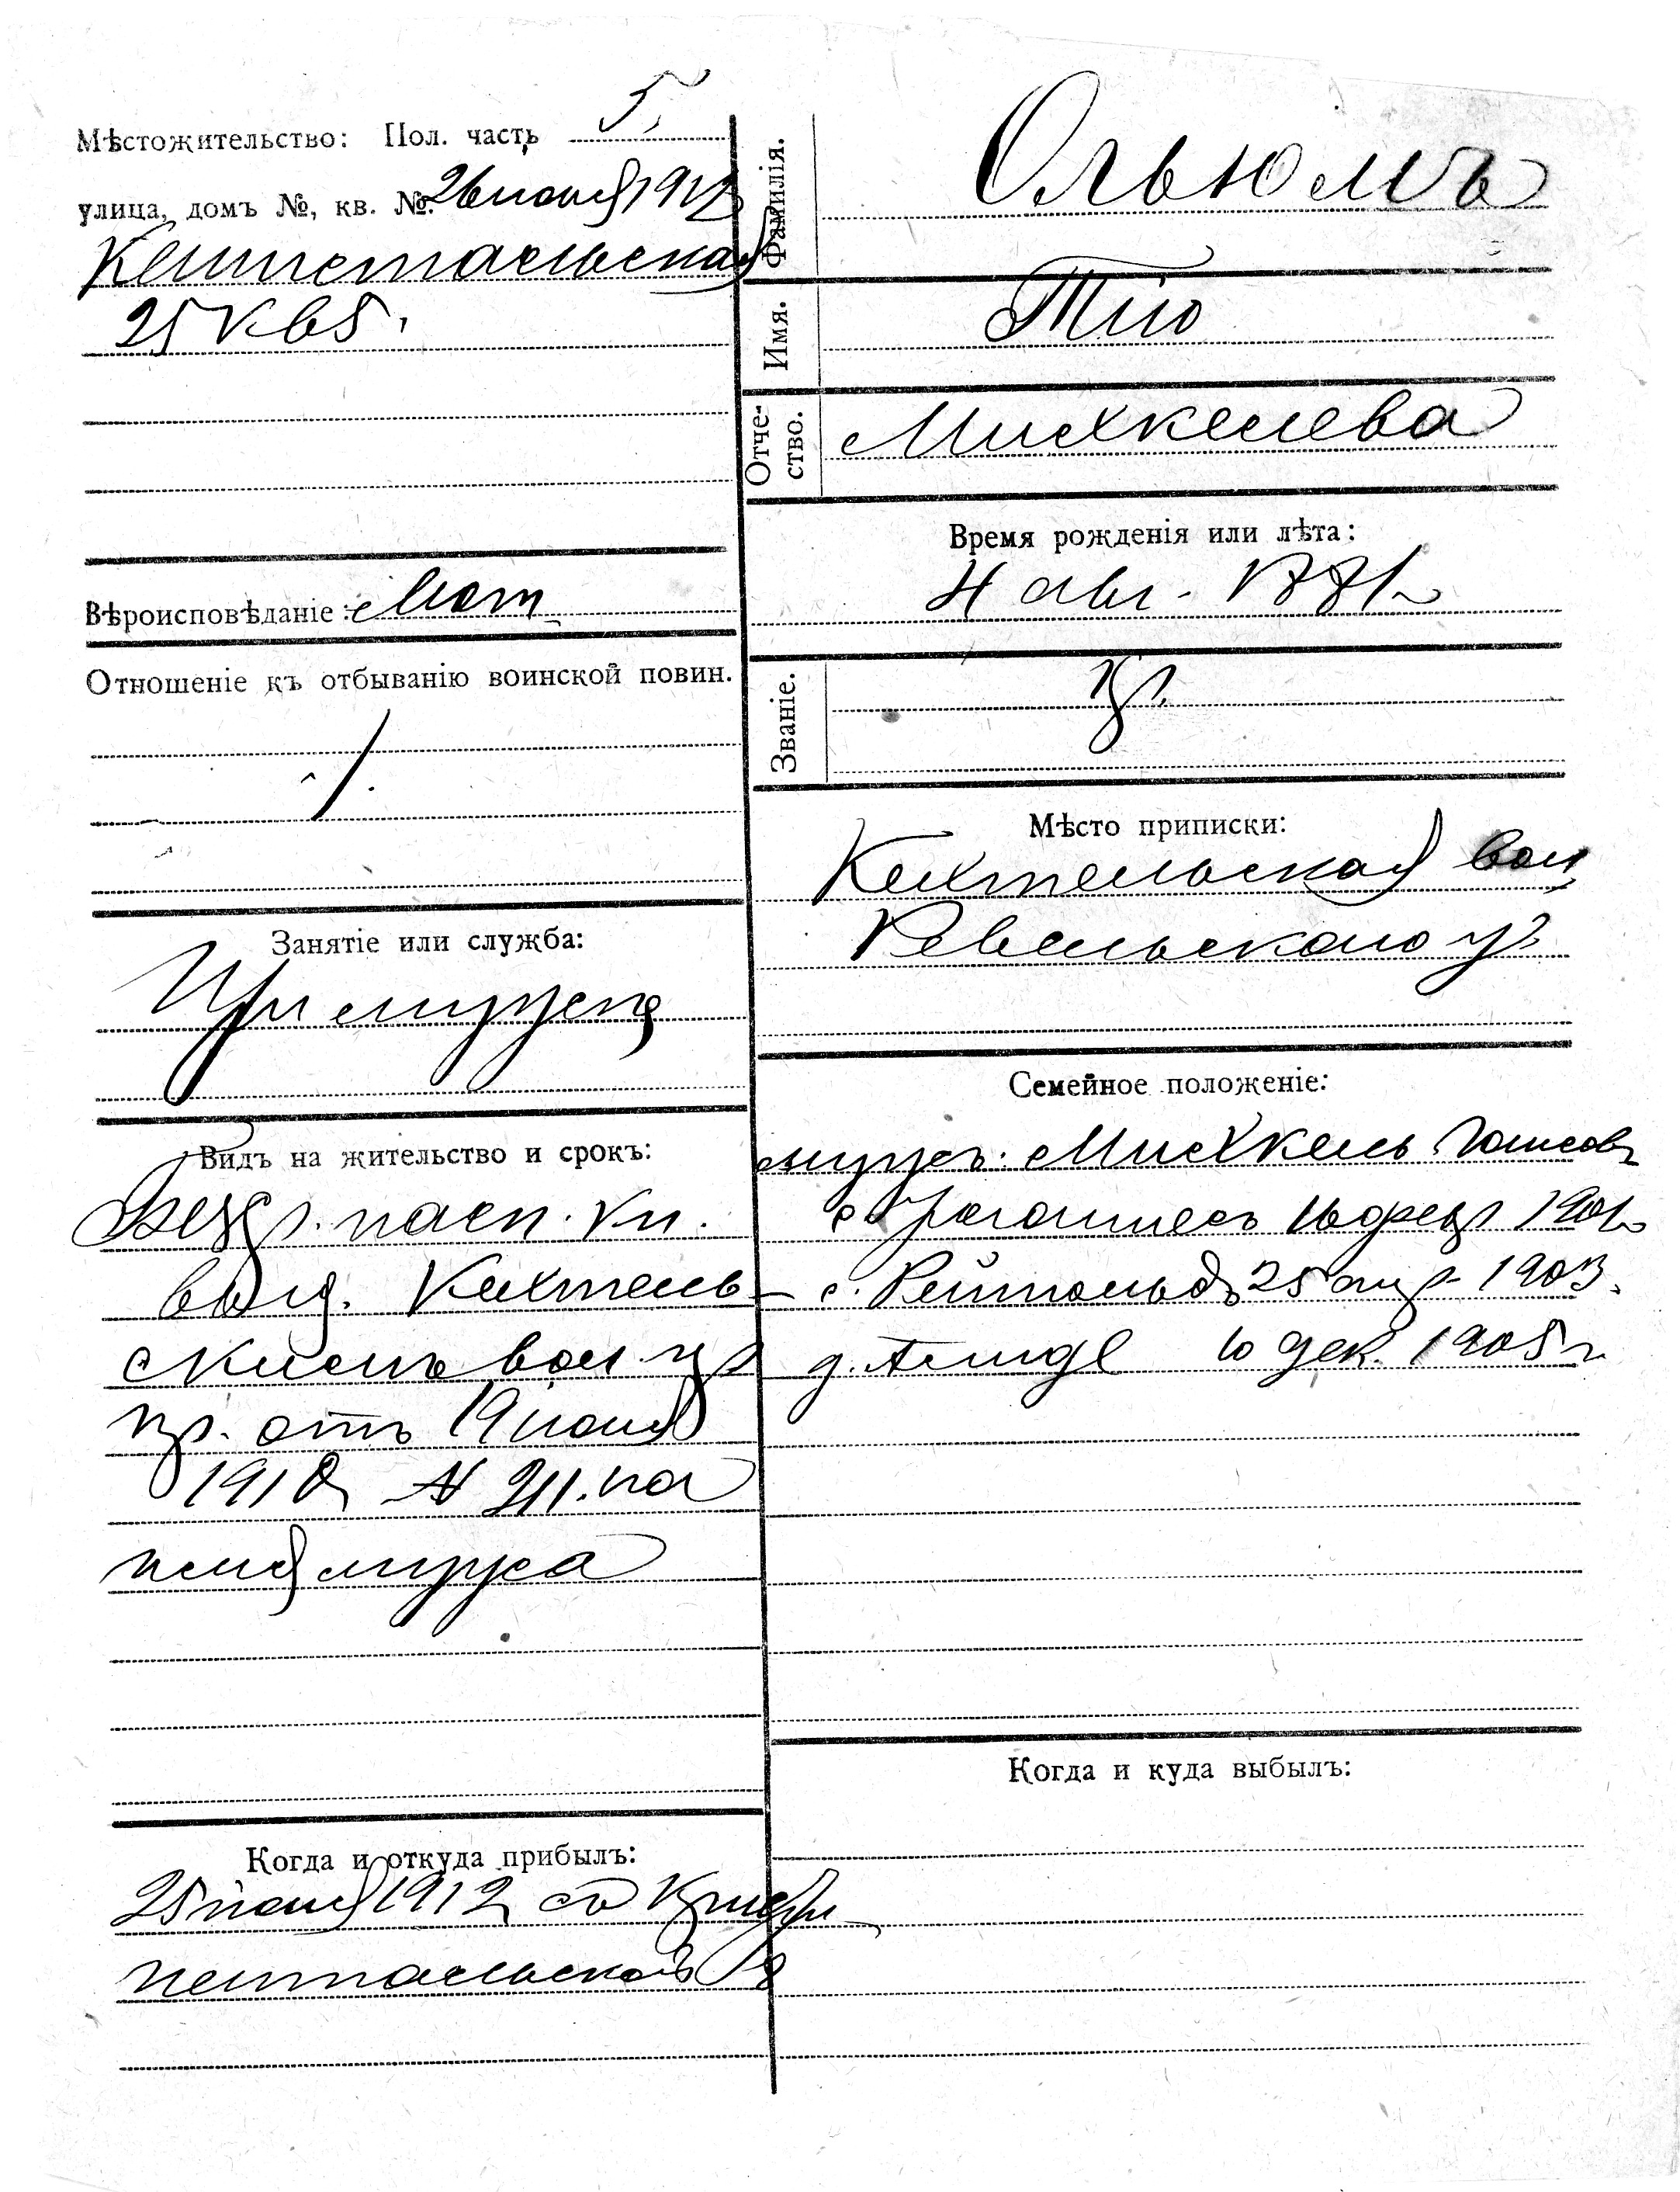 Мѣстожительство: Пол. часть 5,
улица, домъ №, кв. №. 26 июня 1912
Кенигстальская
25 кв 5.
Вѣроисповѣданіе: Лют
Отношеніе къ отбыванію воинской повин.
Занятіе или служба:
При мужѣ
Видъ на жительство и срокъ:
Безср. пасп. кн.
выд. Кехтель-
скимъ вол.
пр. отъ 19 июня
1910 № 211. на
имя мужа
Когда и откуда прибылъ:
25 июня 1912 съ
Фамилія. Ольюмъ
Имя. Тіо
Отче-
ство. Михкелева
Время рожденія или лѣта:
4 авг. 1881
Званіе. кр.
Мѣсто приписки:
Кехтельская вол
Ревельскаго у.
Семейное положеніе:
мужъ: Михкель
с. Іоганнесъ 1901
с. Рейнгольдъ 25 апр 1903.
д. 10 дек. 1905 г.
Когда и куда выбылъ: